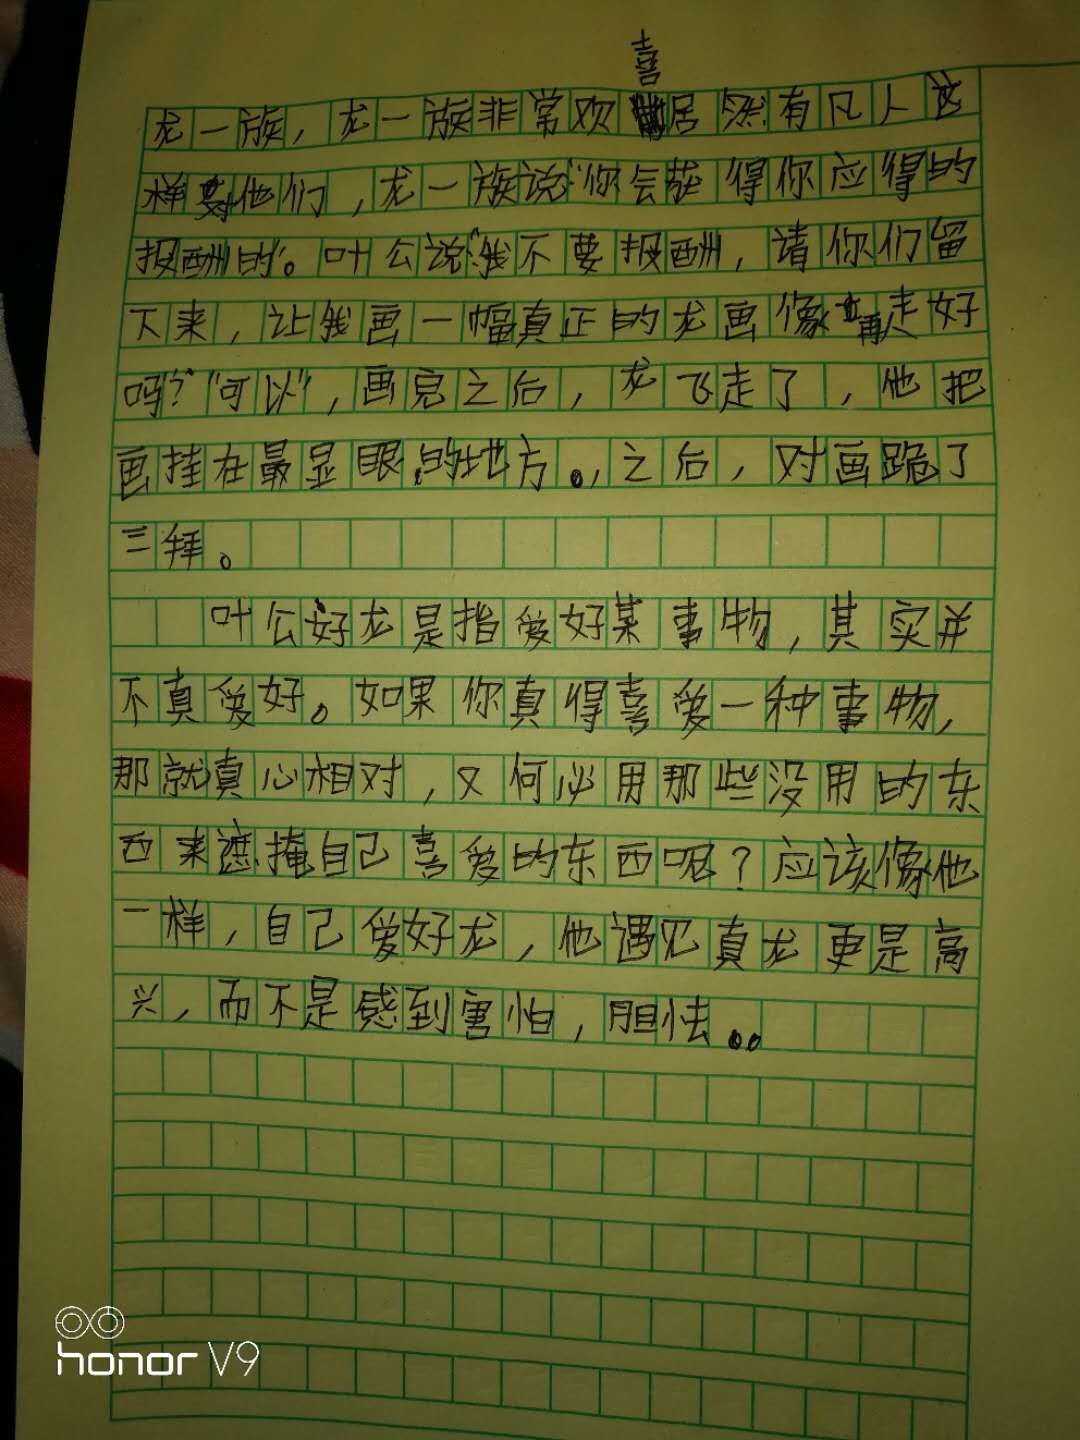 喜
龙一族，龙一族非常欢居然有凡人这
样对他们，龙一族说“你会获得你应得的
报酬的”。叶公说“我不要报酬，请你们留
下来，让我画一幅真正的龙画像再走好
吗？”“可以”，画完之后，龙飞走了，他把
画挂在最显眼的地方。，之后，对画跪了
三拜。
叶公好龙是指爱好某事物，其实并
不真爱好。如果你真得喜爱一种事物，
那就真心相对，又何必用那些没用的东
西来遮掩自己喜爱的东西呢？应该像他
一样，自己爱好龙，他遇见真龙更是高
兴，而不是感到害怕，胆怯。。
honor V9